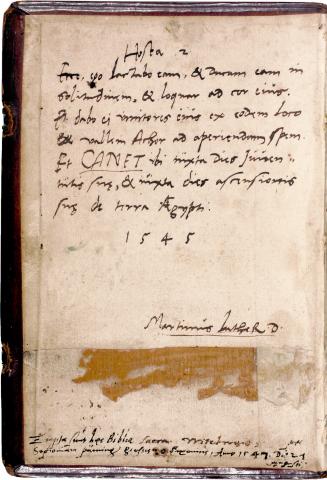 Hosea 2
Ecce, ego lactabo eam, & ducam eam in
solitudinem, & loquar ad cor eius.
Et dabo ei vinitores eius ex eodem loco
& vallem Achor ad aperiendam spem.
Et CANET ibi iuxta dies Juuen-
tutis suę, & iuxta dies ascensionis
suę de terra Ægypti.
1545
Martinus LutheR D.
Empta sunt hec Biblia sacra
Anno 1547